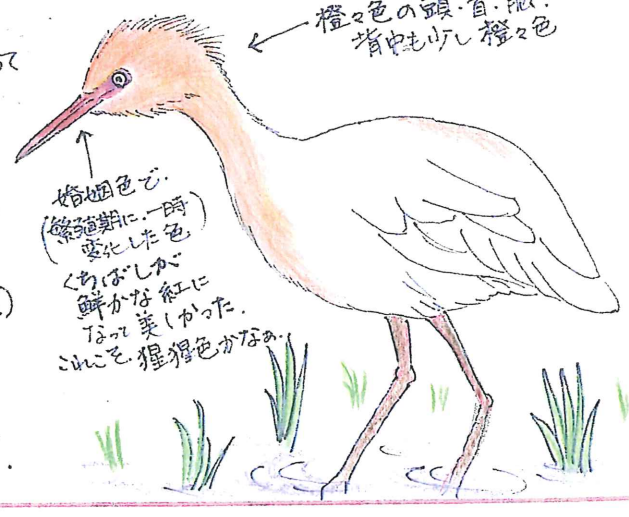 って
橙々色の頭・首・胸.
背中も少し橙々色
婚姻色で.
(繁殖期に.一時
変化した色)
くちばしが
鮮かな紅に
なって美しかった.
これこそ.猩猩色かなぁ..